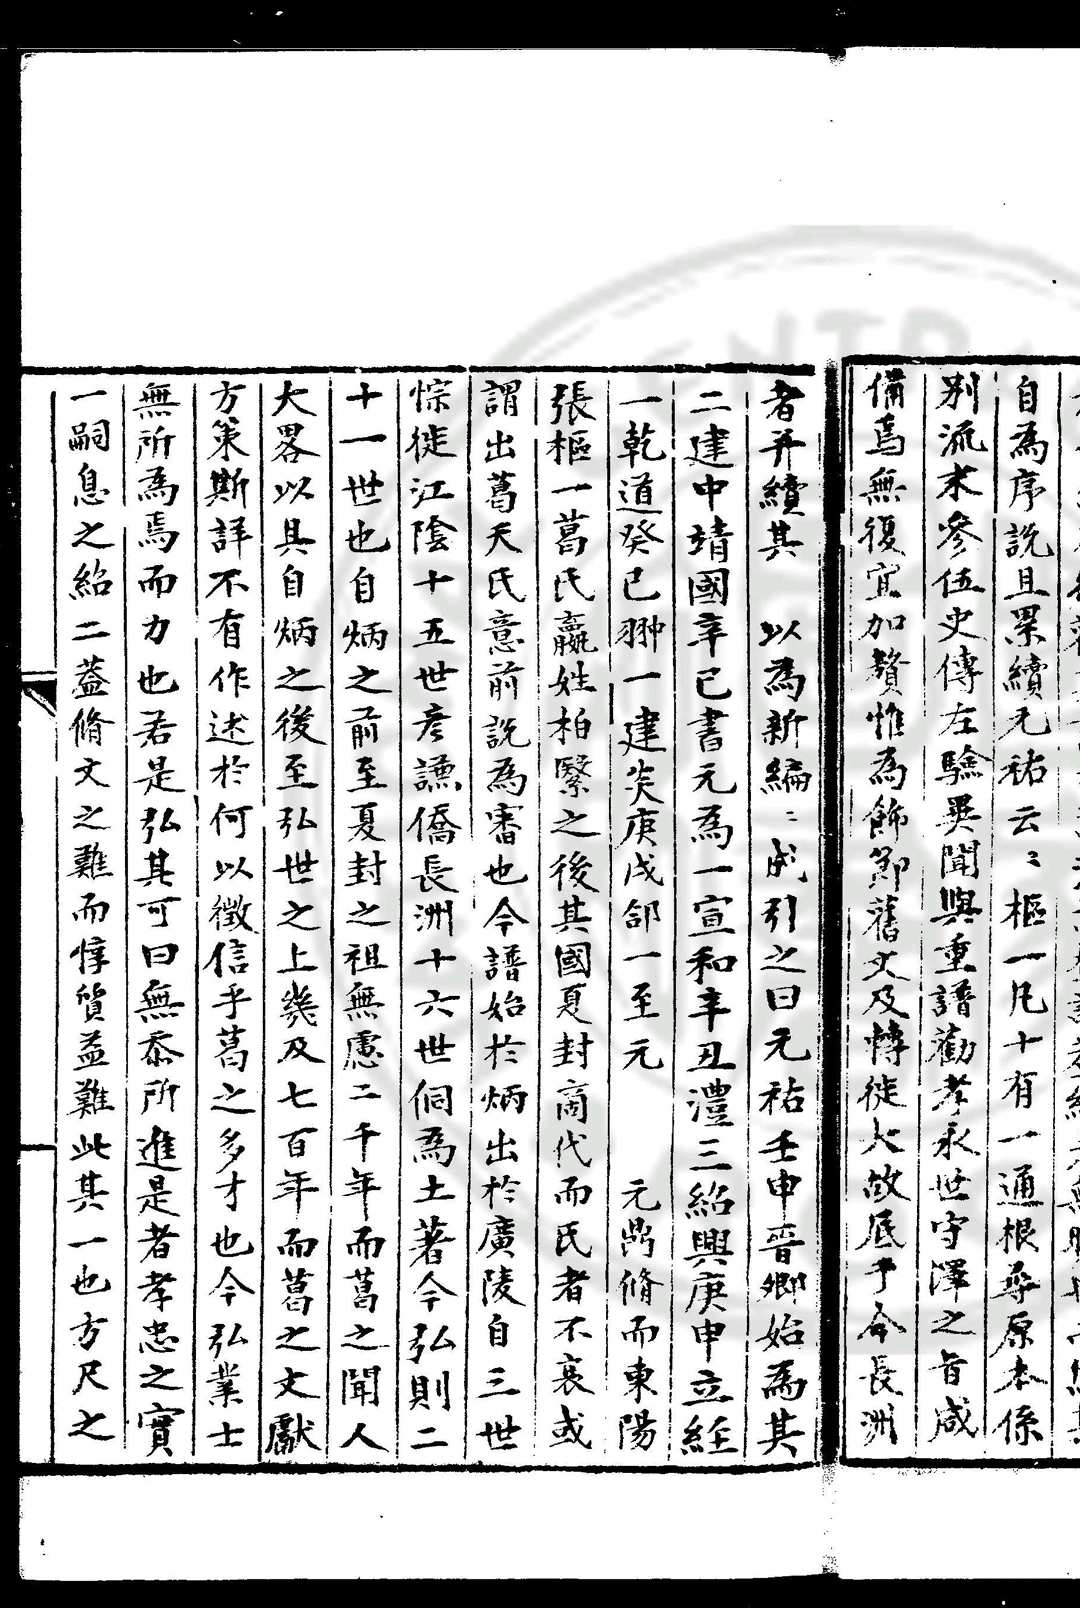 自為序說且累續元祐云〻樞一凡十有一通根尋原本係
別流末參伍史傳左驗異聞與重譜勸孝永世守澤之旨咸
備焉無復宜加贅惟為飾節舊文及轉徙大故厎于今長洲
者并續其 以為新編〻成引之曰元祐壬申晉卿始為其
二建中靖國辛巳書元為一宣和辛丑澧三紹興庚申立經
一乾道癸巳翀一建炎庚戌郃一至元 元鼎脩而東陽
張樞一葛氏嬴姓柏翳之後其國夏封商代而氏者不衰或
謂出葛天氏意前說為審也今譜始於炳出於廣陵自三世
悰徙江陰十五世彥謙僑長洲十六世侗為土著今弘則二
十一世也自炳之前至夏封之祖無慮二千年而葛之聞人
大畧以具自炳之後至弘世之上幾及七百年而葛之文獻
方策斯詳不有作述於何以徵信乎葛之多才也今弘業士
無所為焉而力也若是弘其可曰無忝所進是者孝忠之實
一嗣息之紹二蓋脩文之難而惇質益難此其一也方尺之